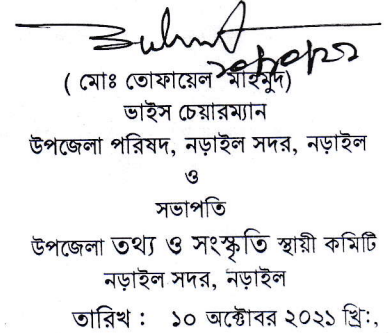 ( মোঃ তোফায়েল মাহমুদ)
ভাইস চেয়ারম্যান
উপজেলা পরিষদ, নড়াইল সদর, নড়াইল
ও
সভাপতি
উপজেলা তথ্য ও সংস্কৃতি স্থায়ী কমিটি
নড়াইল সদর, নড়াইল
তারিখ : ১০ অক্টোবর ২০২১ খ্রি:.